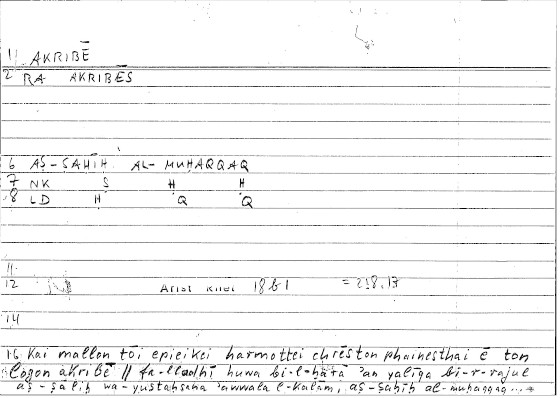 1 AKRIBĒ
2 RA AKRIBĒS
6 AṢ-ṢAḤĪḤ AL-MUḤAQQAQ
7 NK Ṣ Ḥ Ḥ
8 LD Ḥ Q Q
11
12 Arist Rhet 18b1 = 218,13
14
16 Kai mallon tōi epieikei harmottei chrēston phainesthai ē ton
logon akribē // fa-lladhī huwa bi-l-ḥarā ʾan yalīqa bi-r-rajul
aṣ-ṣāliḥ wa-yustaḥsana ʾawwala l-kalāmi, aṣ-ṣaḥīḥ al-muḥaqqaq...